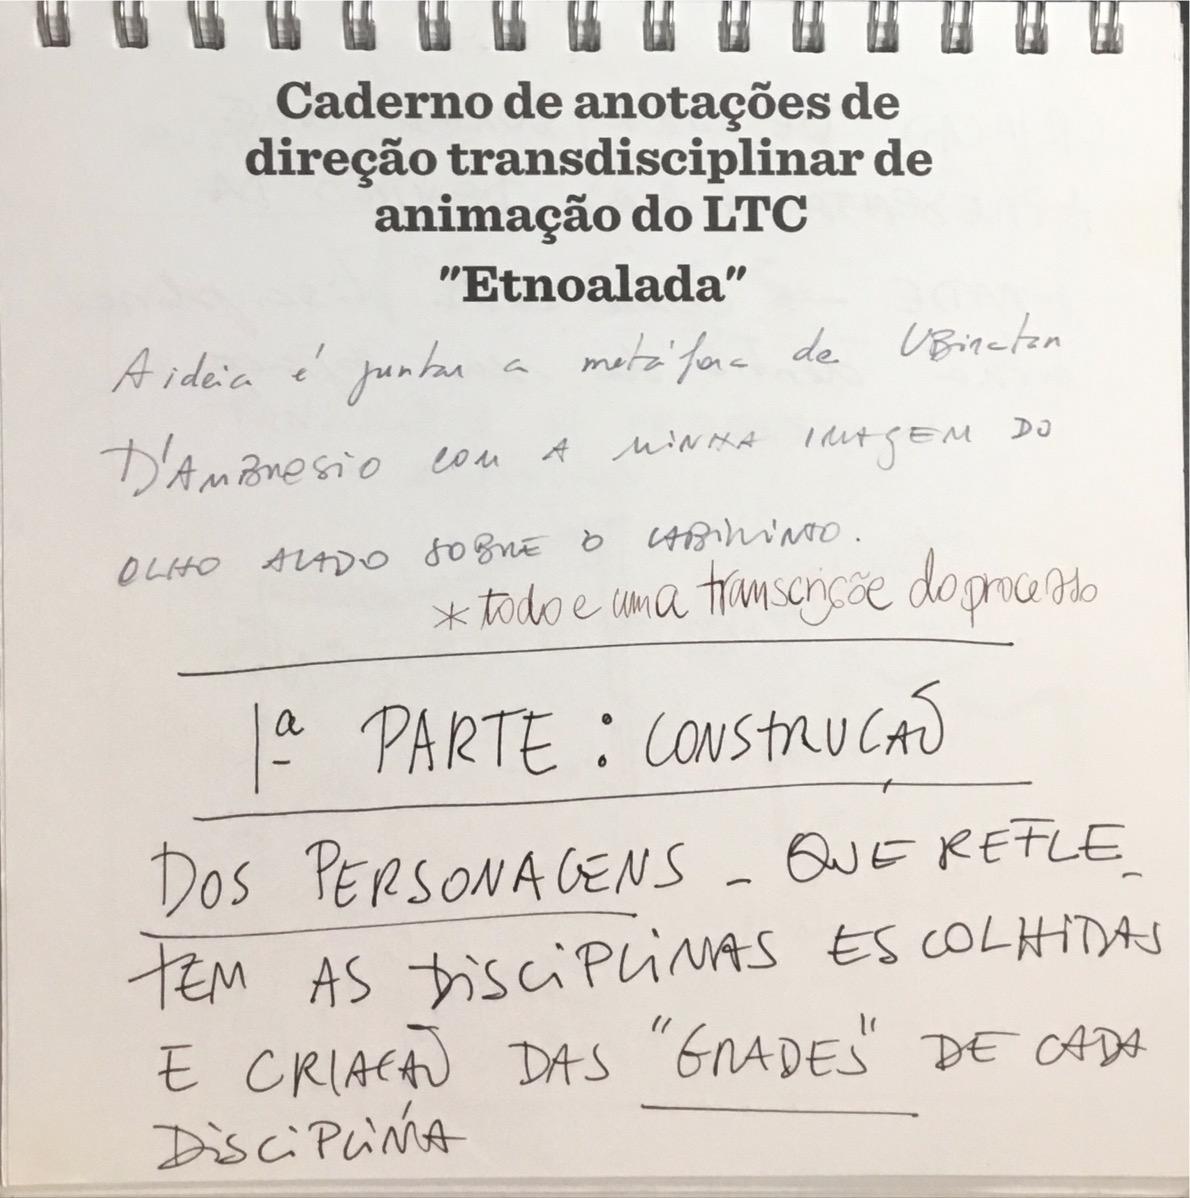 Caderno de anotações de
direção transdisciplinar de
animação do LTC
"Etnoalada"
A ideia é juntar a metáfora de UBiratan
D'AMBROSIO COM A MINHA IMAGEM DO
OLHO ALADO SOBRE O LABIRINTO.
* todo e uma transcrição do processo
1ª PARTE : CONSTRUÇÃO
DOS PERSONAGENS - QUE REFLE_
TEM AS DISCIPLINAS ESCOLHIDAS
E CRIAÇÃO DAS "GRADES" DE CADA
DISCIPLINA